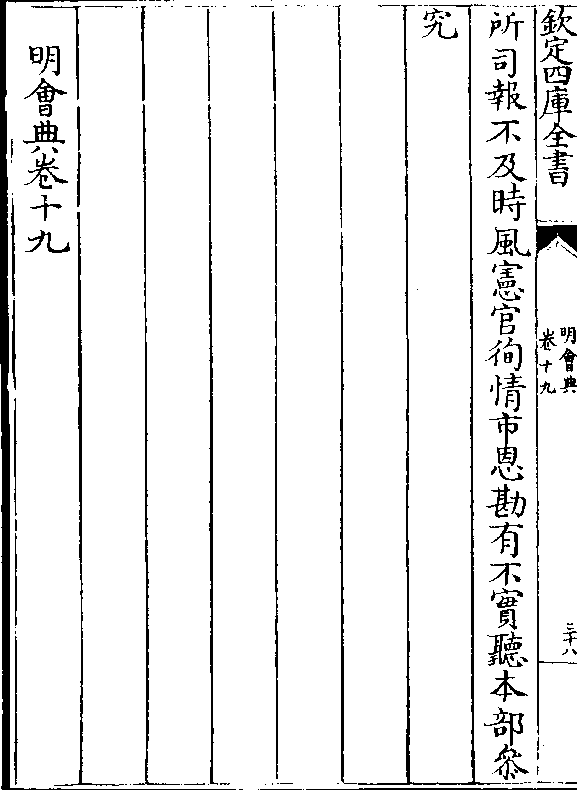 欽定四庫全書
明會典
卷十九
三十八
所司報不及時風憲官徇情市恩勘有不實聽本部叅
究
明會典卷十九